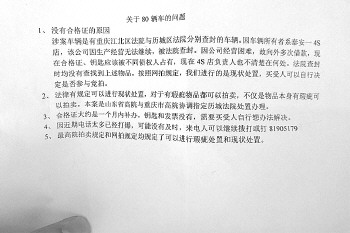 关于 80 辆车的问题
1、 没有合格证的原因
涉案车辆是有重庆江北区法院与历城区法院分别查封的车辆。因车辆所有者系泰安一 4S
店，该公司因生产经营无法继续，被法院查封。因公司经营困难，故向外多次借款，现
在合格证、钥匙应该被不同债权人占有，现在 4S 店负责人也不清楚在何处。法院查封
时均没有查找到上述物品。按照网拍规定，我们进行的是现状处置，买受人可以自行决
定是否参与竞拍。
2、 法律有规定可以进行现状处置，对于有瑕疵物品都可以拍卖，不仅是物品本身有瑕疵可
以拍卖。本案是山东省高院与重庆市高院协调指定历城法院处置办理。
3、 合格证大约是一个月内补办。钥匙和发票没有，需要买受人自行想办法解决。
4、 因近期电话太多已经打爆，可能没有及时，来电人可以继续拨打或打 81905179
5、 最高院拍卖规定和网拍规定均规定了可以进行瑕疵处置和现状处置。